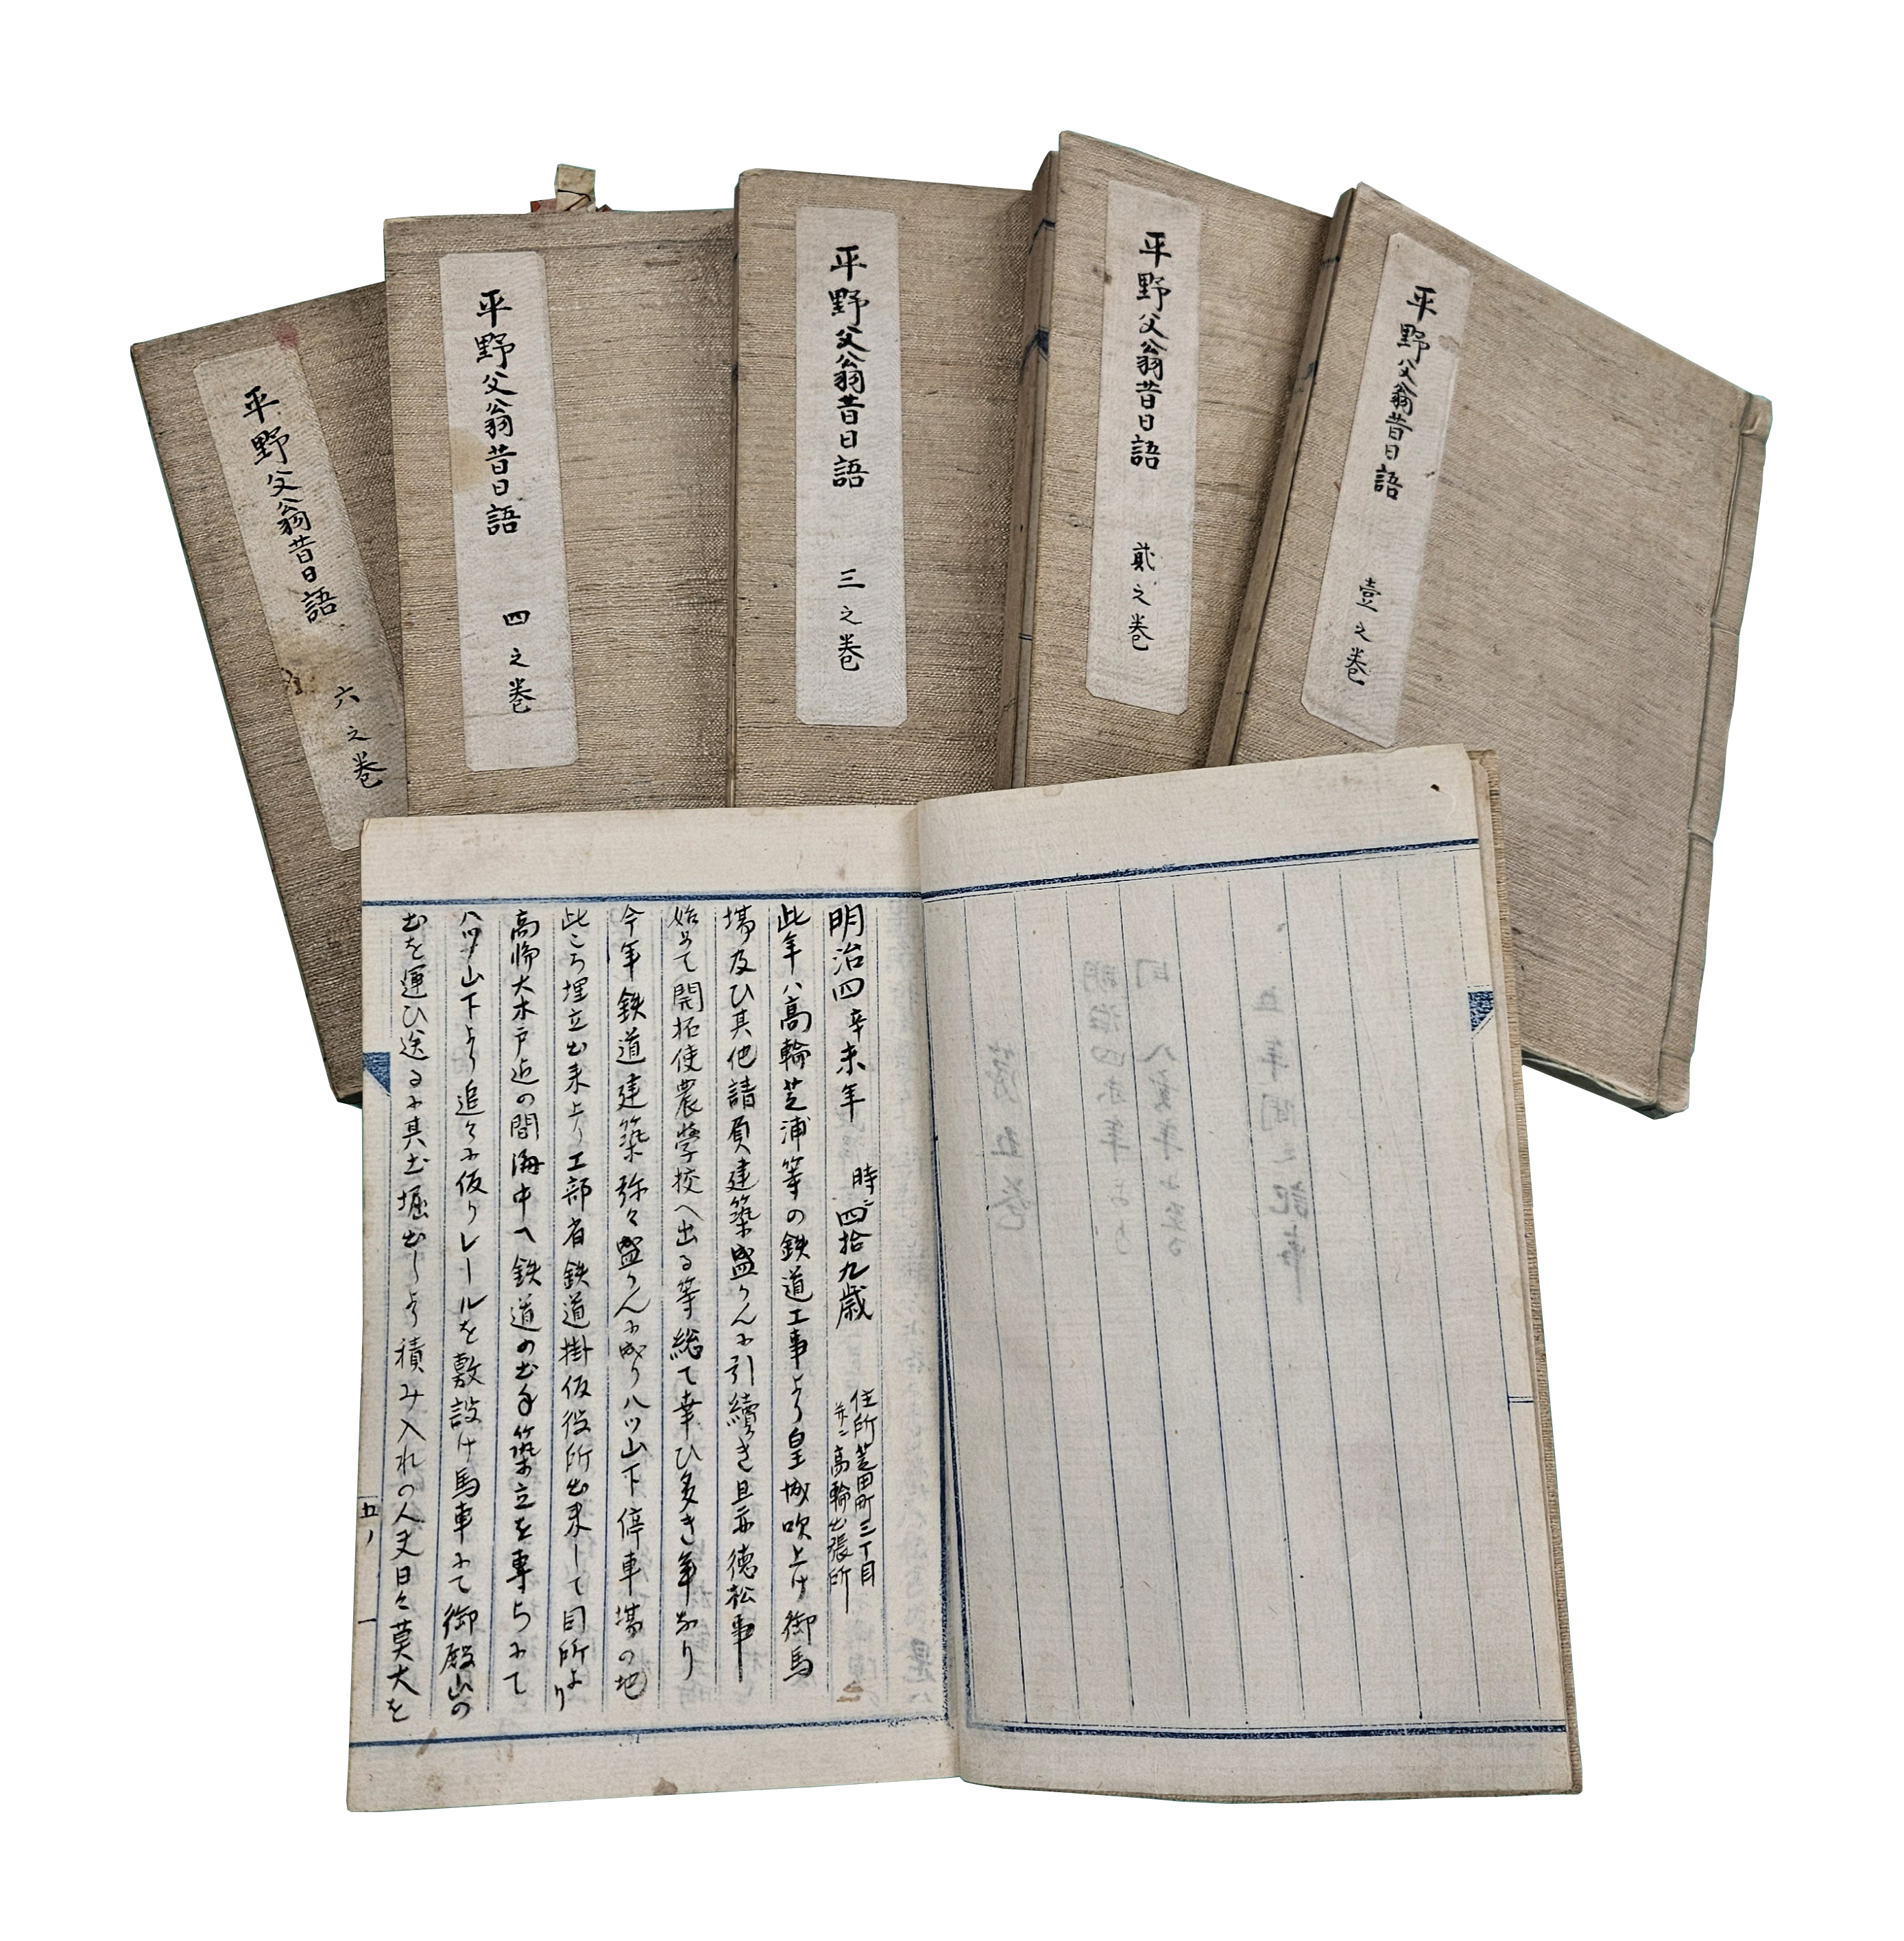 平野父翁昔日語 壹之巻
平野父翁昔日語 貳之巻
平野父翁昔日語 三之巻
平野父翁昔日語 四之巻
平野父翁昔日語 六之巻
明治四辛未年 時ニ四拾九歳
住所芝田町三丁目
并ニ高輪出張所
此年ハ高輪芝浦等の鉄道工事より皇城吹上け御馬
場及ひ其他請負建築盛んに引續き且亦徳松事
始めて開拓使農学校へ出る等総て幸ひ多き年なり
今年鉄道建築弥々盛んに成り八ツ山下停車場の地
此ころ埋立出来上り工部省鉄道掛仮役所出来して同所より
高輪大木戸迠の間海中へ鉄道の土手築立を専らにて
八ツ山下より追々に仮りレールを敷設け馬車にて御殿山の
土を運ひ送るに其土堀出しより積み入れの人夫日々莫大を
五ノ
一